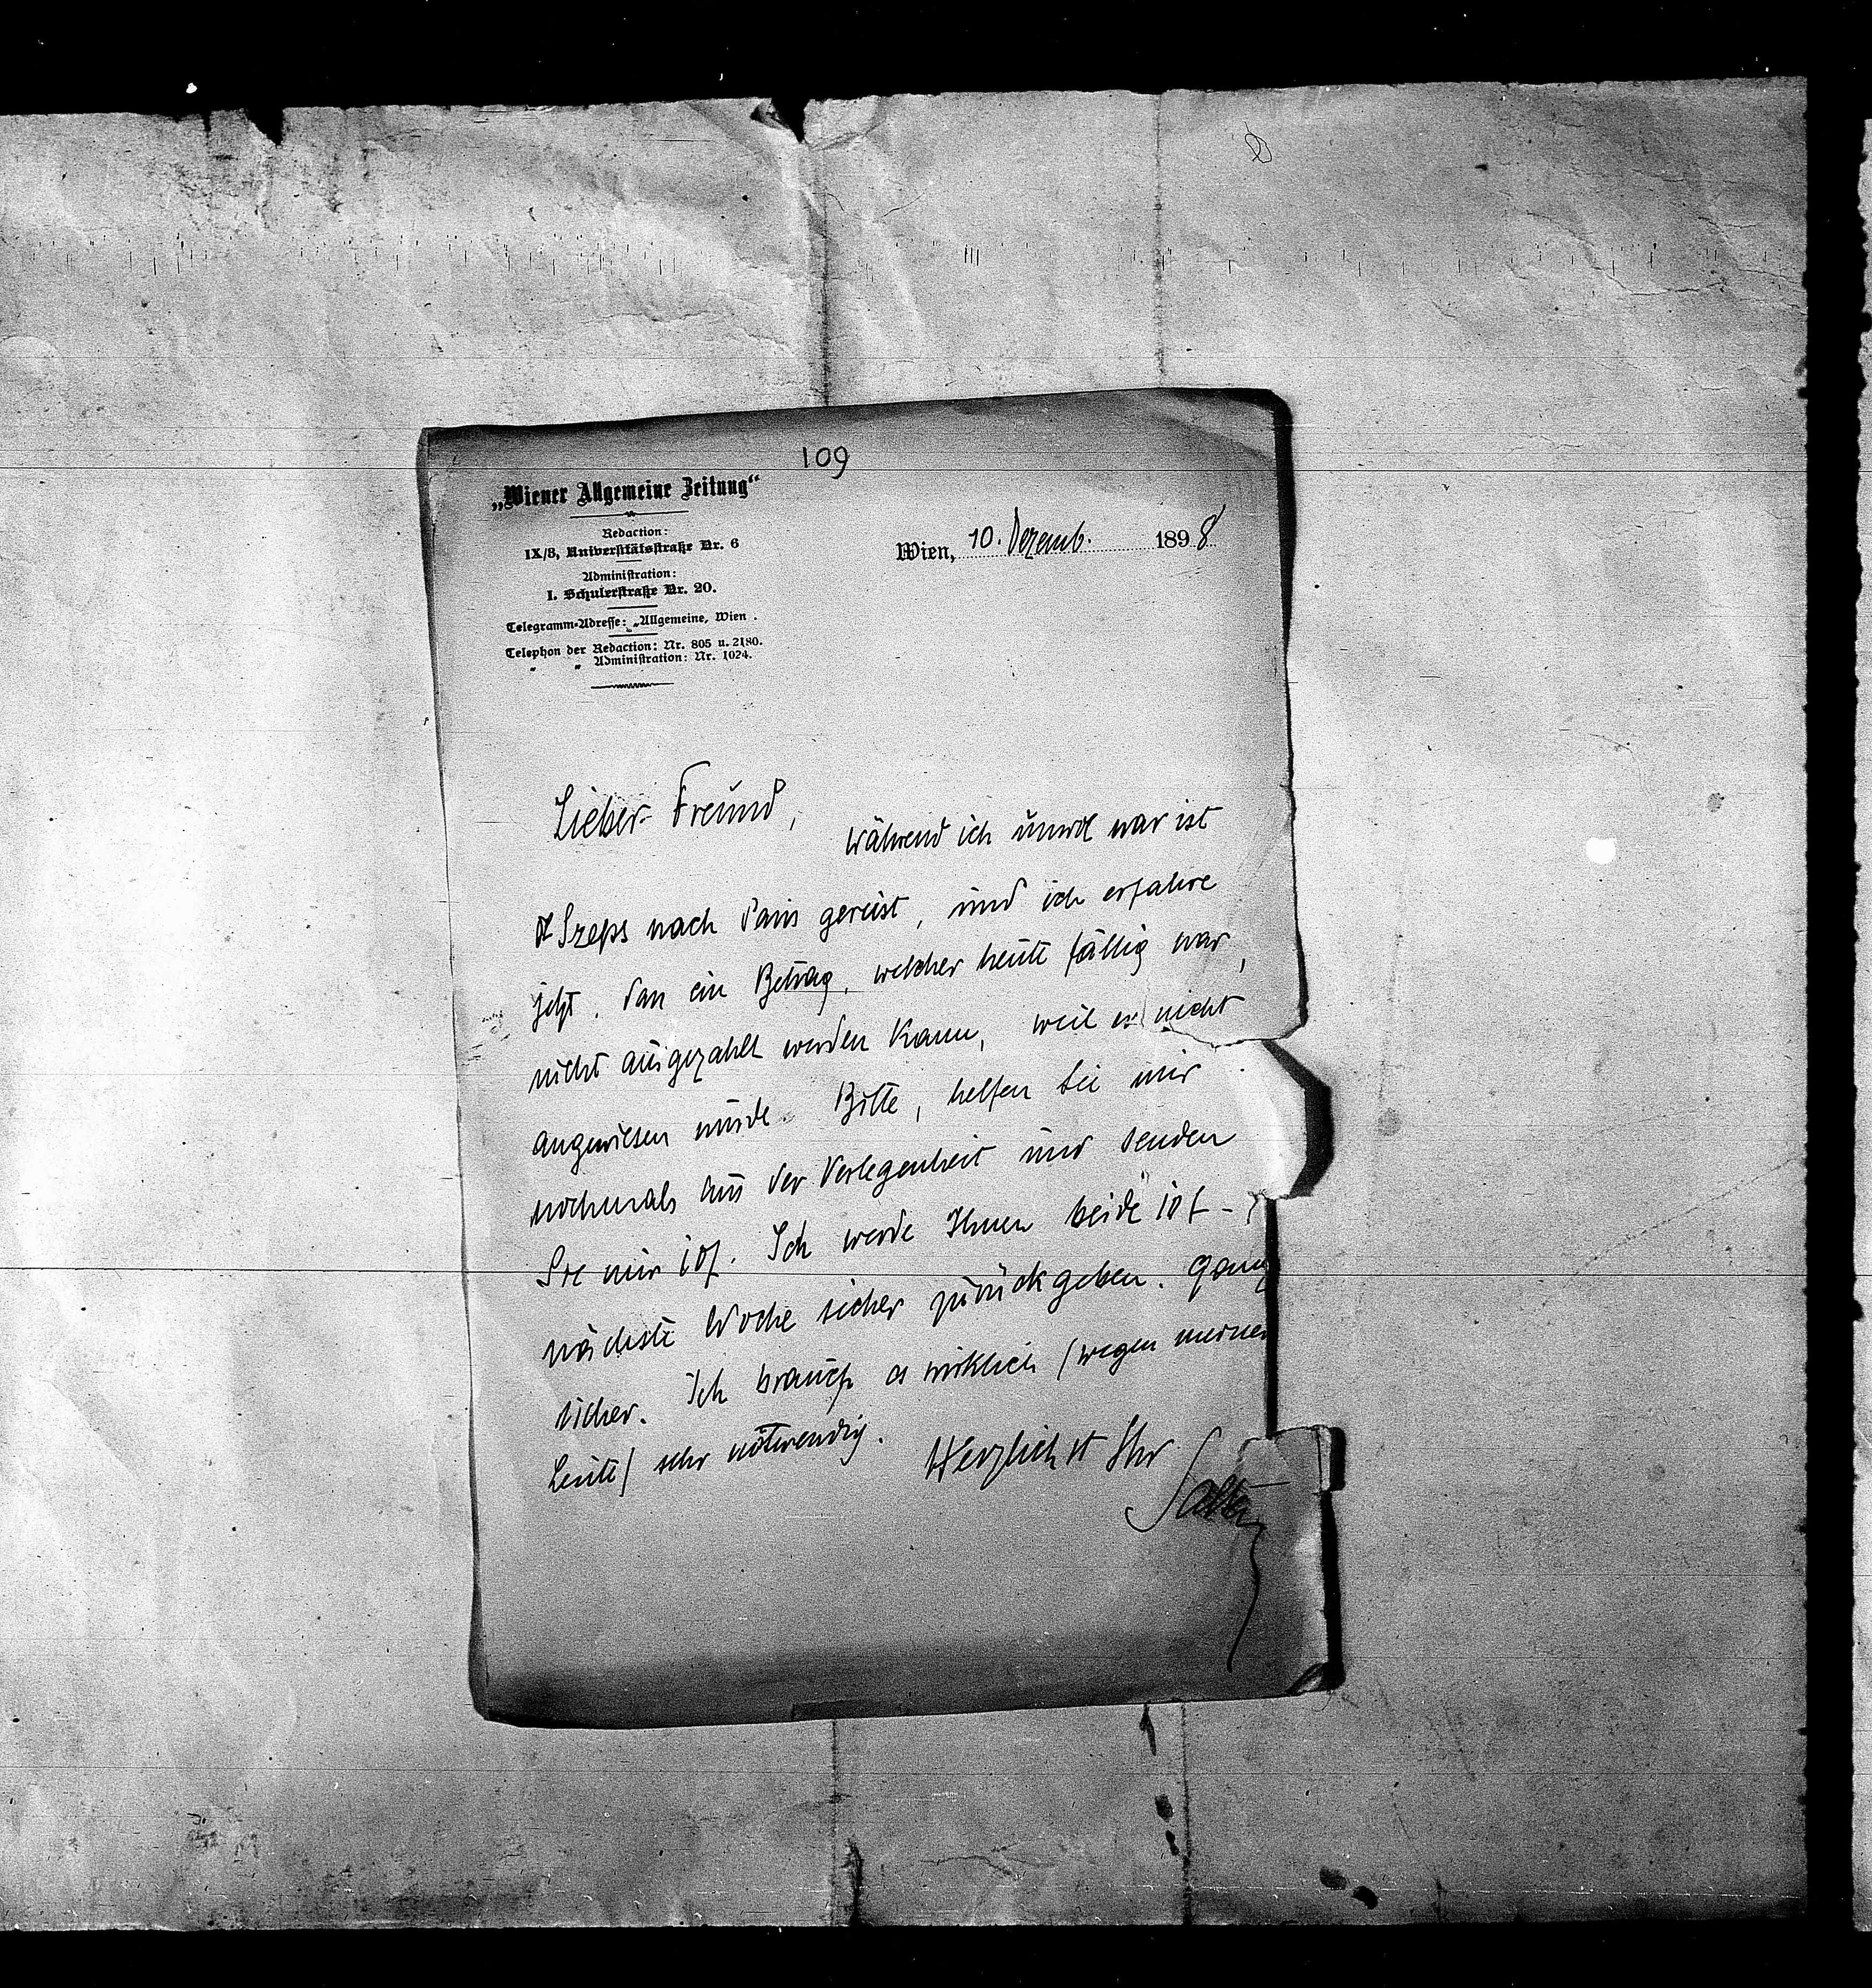 109
„Wiener Allgemeine Zeitung“
Redaction:
IX/3, Universitätsstraße Nr. 6
Administration:
I. Schulerstraße Nr. 20.
Telegramm-Adresse: „Allgemeine, Wien .
Telephon der Redaction: Nr. 805 u. 2180.
" " Administration: Nr. 1024.
Wien, 10. Dezemb. 1898
Lieber Freund,
während ich unwol war ist
Szeps nach Paris gereist, und ich erfahre
jetzt, dass ein Betrag, welcher heute fällig war,
nicht ausgezahlt werden kann, weil er nicht
angewiesen wurde. Bitte, helfen Sie mir
nochmals aus der Verlegenheit und senden
Sie mir 10f. Ich werde Ihnen beide 10 f –
nächste Woche sicher zurückgeben. ganz
sicher. Ich brauche es wirklich (wegen meiner
Leute) sehr notwendig.
Herzlichst Ihr
Salten